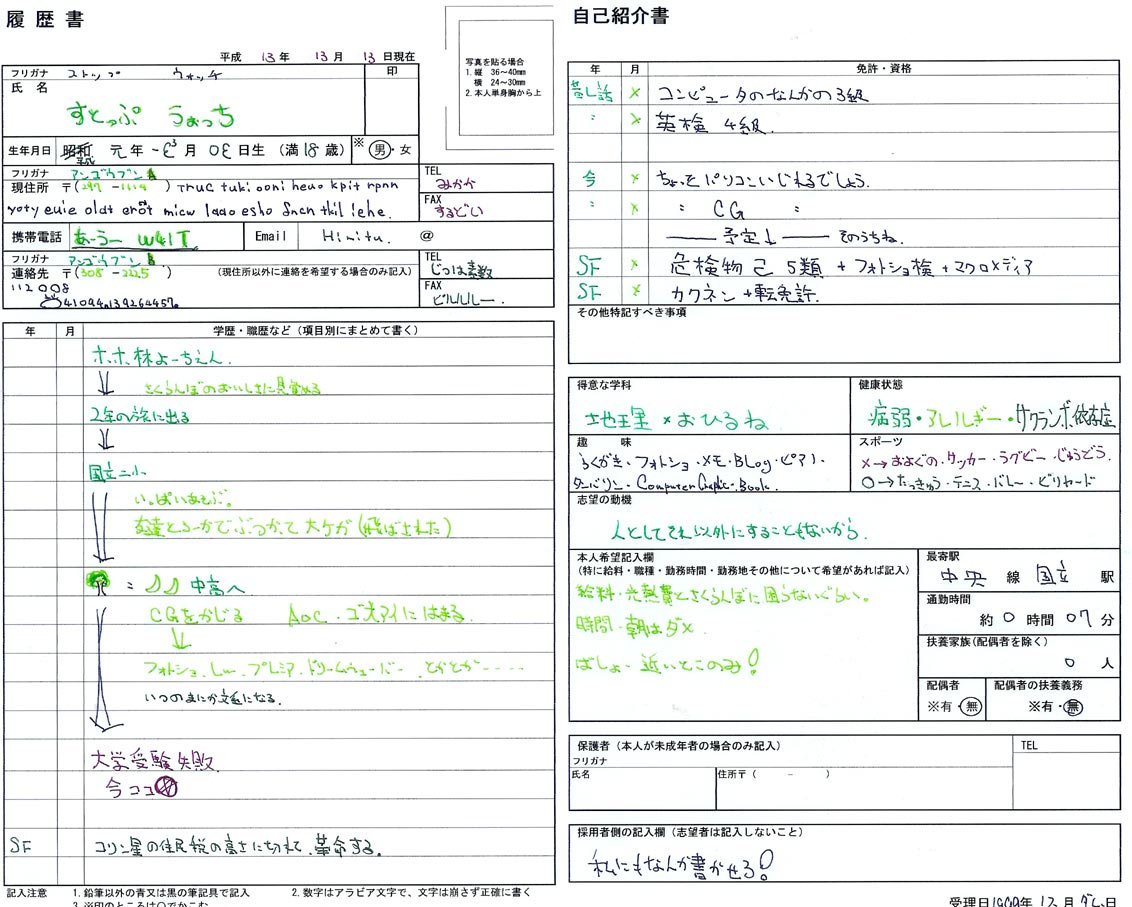 履歴書
平成 13年 13月 13日現在
フリガナ ストップ ウォッチ
印
氏 名
すとっぷ うぉっち
写真を貼る場合
1. 縦 36～40mm
横 24～30mm
2. 本人単身胸から上
生年月日 昭和 元年 月 日生 (満 18 歳) ※ 男・女
フリガナ アンゴウブン
現住所 〒(297 -1114 ) Truc tuki ooni heuo kpit rpnn
yoty euie oldt erot micw laao esho sncn tkil lehe.
TEL
みかか
FAX
するどい
携帯電話 あーうー W41T
Email Himitu. @
フリガナ アンゴウブン
連絡先 〒(308 -2225 ) (現住所以外に連絡を希望する場合のみ記入)
112008
41094.139264457.
TEL
じつは素数
FAX
ビルルルー.
年 月 学歴・職歴など (項目別にまとめて書く)
ホ.ホ.林よーちえん.
さくらんぼのおいしさに目覚める
2年の旅に出る
国立二小
いっぱいあそぶ。
友達とろーかでぶつかって大ケガ(飛ばされた)
= 中高へ
CGをかじる AoC・ゴ大アイにはまる
フォトショ.Lw.プレミア.ドリームウェーバー とかとか-----
いつのまにか文系になる.
大学受験失敗.
今ココ
SF コリン星の住民税の高さに切れて.革命する.
記入注意 1. 鉛筆以外の青又は黒の筆記具で記入 2. 数字はアラビア文字で、文字は崩さず正確に書く
3. ※印のところは○でかこむ
自己紹介書
年 月 免許・資格
昔し話 × コンピュータのなんかの3級
〃 × 英検 4級.
今 × ちょっとパソコンいじれるでしょう.
〃 × 〃 CG 〃
予定↓ そのうちね.
SF × 危険物 乙 5類 + フォトショ検 + マクロメディア
SF × カクネン + 転免許.
その他特記すべき事項
得意な学科
地理 × おひるね
健康状態
病弱・アレルギー・サクランボ依存症
趣 味
らくがき・フォトショ・メモ・BLog・ピアノ・
タンバリン・Computer Graphic・Book.
スポーツ
×→およぐの・サッカー・ラグビー・じゅうどう.
○→たっきゅう・テニス・バレー・ビリヤード
志望の動機
人としてそれ以外にすることもないから.
本人希望記入欄
(特に給料・職種・勤務時間・勤務地その他について希望があれば記入)
給料・光熱費とさくらんぼに困らないぐらい。
時間・朝はダメ
ばしょ・近いとこのみ!
最寄駅
中央 線 国立 駅
通勤時間
約 0 時間 07 分
扶養家族(配偶者を除く)
0 人
配偶者
※有・無
配偶者の扶養義務
※有・無
保護者 (本人が未成年者の場合のみ記入)
フリガナ
氏名
住所〒( - )
TEL
採用者側の記入欄 (志望者は記入しないこと)
私にもなんか書かせろ!
受理日 年 12 月 日